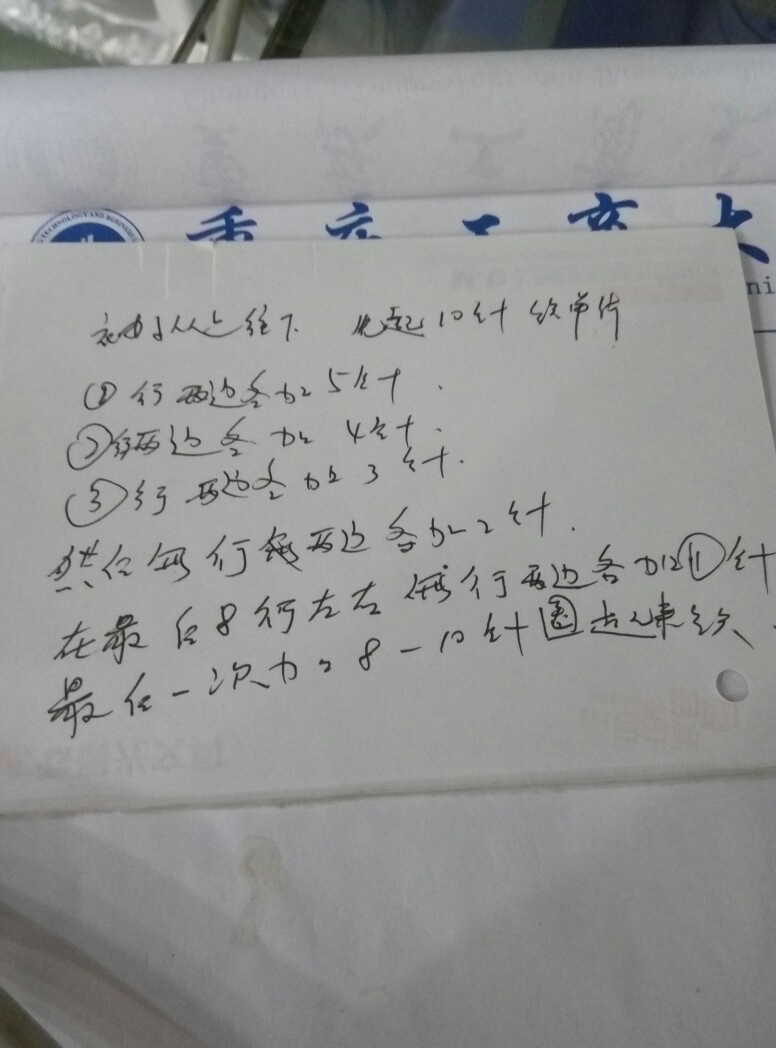 TECHNOLOGY AND BUSINESS
重庆工商大
ni
衣 从上往下. 起10针 织单片
① 行两边各加5针.
②行两边各加4针.
③行两边各加3针.
然后每行 两边各加2针.
在最后8行左右 每行两边各加①针
最后一次加8-10针圈起来织.